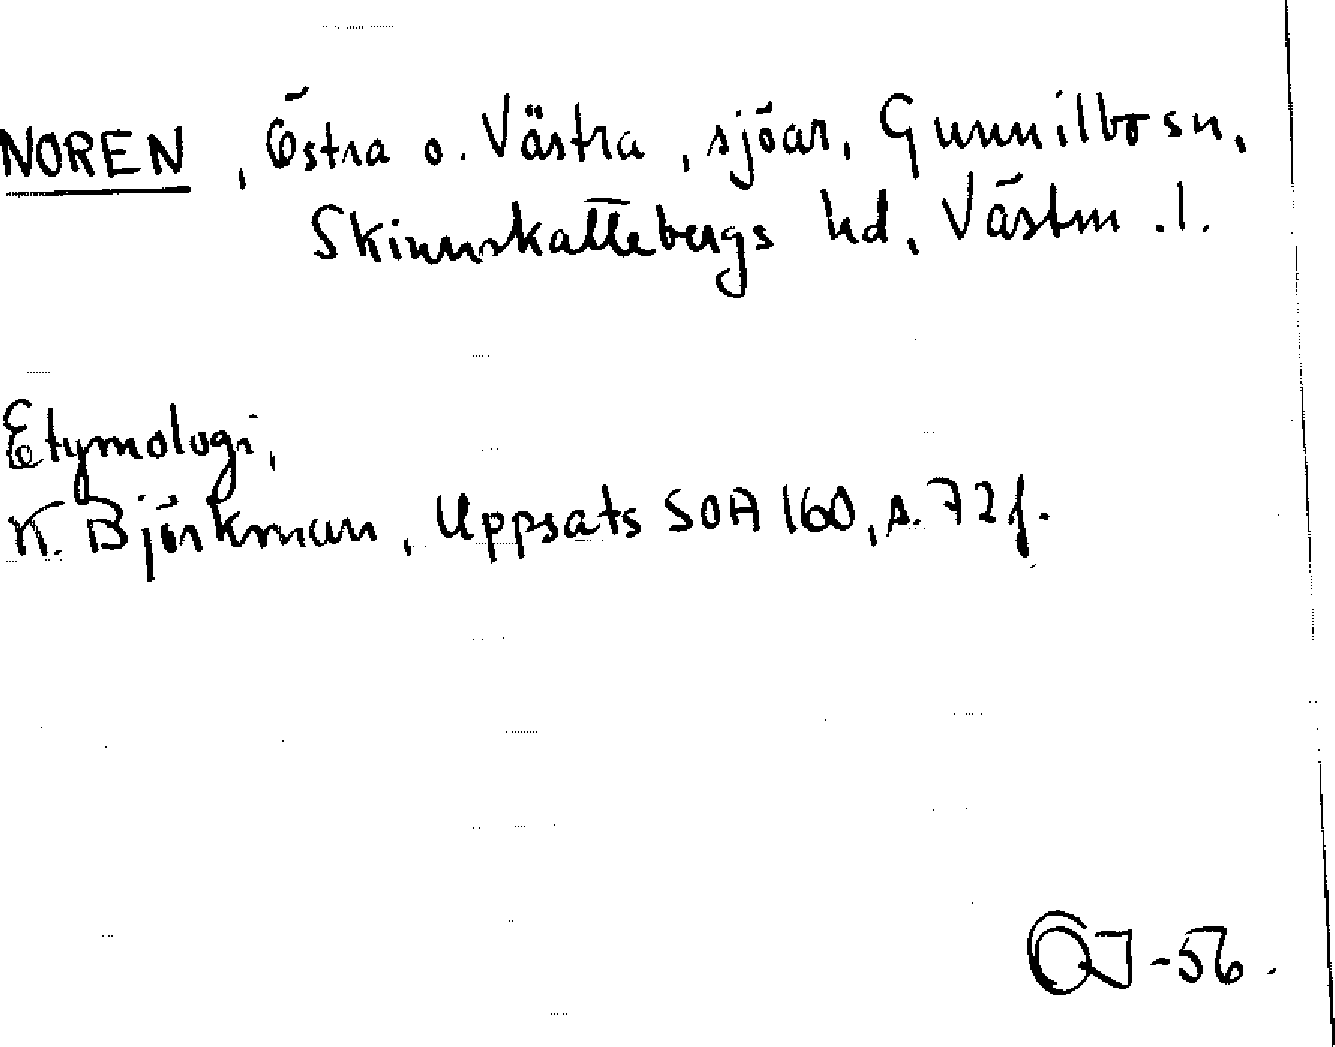 NOREN, Östra o. Västra, sjöar, Gunnilbo sn,
Skinnskattebergs hd, Västm. l.
Etymologi,
K. Björkman, Uppsats SOA 160, s. 72 f.
-56.